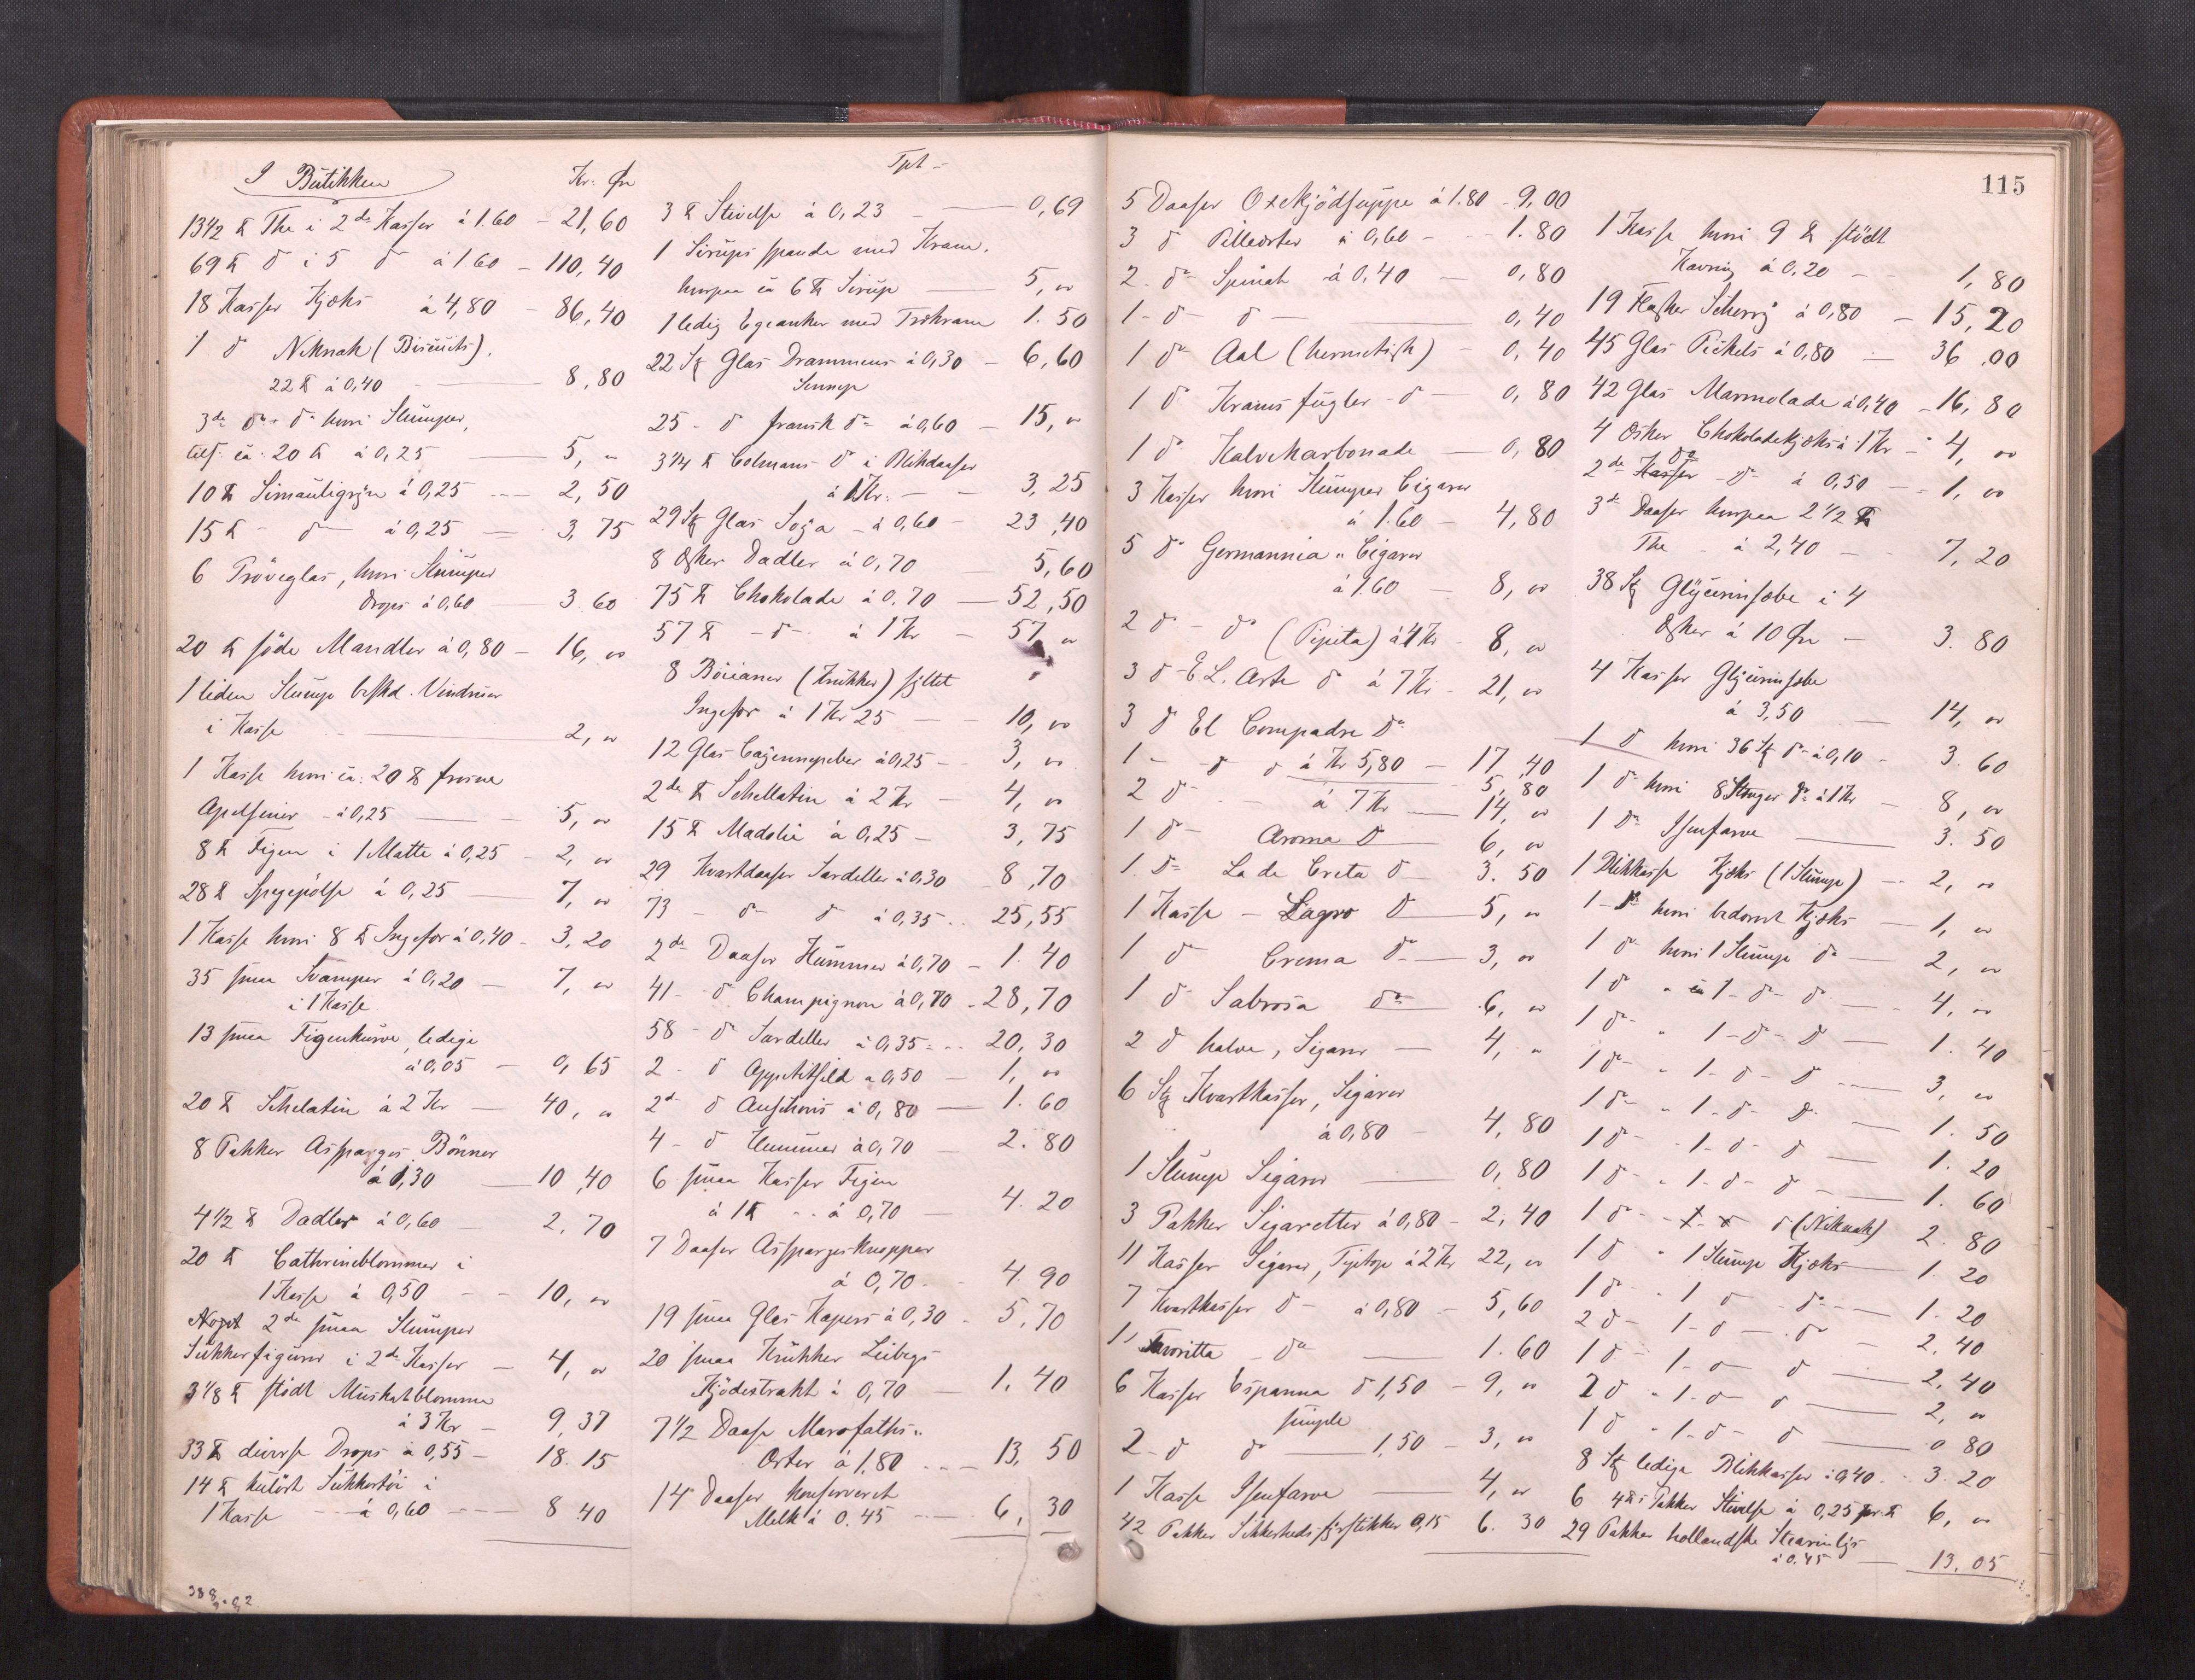 I Butikken Kr. Øre
13 1/2 ℔ The i 2de Kasser á 1.60 - 21,60
69 ℔ do i 5 do á 1.60 - 110,40
18 Kasser Kjæks á 4,80 - 86,40
1 do Niknak (Biscuits).
22 ℔ á 0,40 - 8,80
3de do - do hvori Slumper,
tils. ca. 20 ℔ á 0,25 - 5, "
10 ℔ Simuligryn á 0,25 - 2,50
15 ℔ - do á 0,25 - 3,75
6 Pröveglas, hvori Slumper
Drops á 0,60 - 3.60
20 ℔ söde Mandler á 0,80 - 16, oo
1 liden Slump beskd. Vindruer
i Kasse - 2, oo
1 Kasse hvori ca. 20 ℔ frosne
Apelsiner - á 0,25 - 5, oo
8 ℔ Figen i 1 Matte á 0,25 - 2, oo
28 ℔ Spegepölse á 0,25 - 7, oo
1 Kasse hvori 8 ℔ Ingefær á 0,40 - 3,20
35 smaa Svamper á 0,20 - 7, oo
i 1 Kasse
13 smaa Figenkurve, ledige
á 0,05 - 0,65
20 ℔ Schelatin á 2 Kr - 40, oo
8 Pakker Asparges Bönner
á 1,30 - 10,40
4 1/2 ℔ Dadler á 0,60 - 2,70
20 ℔ Cathrineblommer i
1 Kasse á 0,50 - 10, oo
Noget 2de smaa Slumper
Sukkerfigurer i 2de Kasser - 4, oo
3 1/8 ℔ stödt Muskatblomme
á 3 Kr - 9,37
33 ℔ diverse Drops á 0,55 - 18.15
14 ℔ kulört Sukkertöi i
1 Kasse - á 0,60 - 8.40
Tpt -
3 ℔ Stivelse á 0,23 - 0,69
1 Sirups spande med Krane,
hvorpaa ca 6 ℔ Sirup - 5, oo
1 ledig Egeanker med Trækrane 1.50
22 St Glas Drammens á 0,30 - 6,60
Sennep
25 - do fransk do á 0,60 - 15, oo
3 1/4 ℔ Colmans do i Blikdaaser
á 1 Kr. - 3,25
29 St Glas Soja - á 0,60 - 23,40
8 Æsker Dadler á 0,70 - 5,60
75 ℔ Chokolade á 0.70 - 52,50
57 ℔ - do - á 1 Kr - 57 oo
8 (Krukker) syltet
Ingefær á 1 Kr 25 - 10, oo
12 Glas Cayennepeber á 0,25 - 3, oo
2de ℔ Schellatin á 2 Kr - 4, oo
15 ℔ á 0,25 - 3,75
29 Kvartdaaser Sardeller á 0,30 8,70
73 - do - do á 0,35 - 25,55
2de Daaser Hummer á 0,70 - 1.40
41 - do Champignon á 0,70 - 28,70
58 - do Sardeller á 0,35 - 20,30
2 - do Appetitsild á 0,50 - 1, oo
2de do Anschovis á 0,80 - 1.60
4 - do Hummer á 0,70 - 2.80
6 smaa Kasser Figen
á 1 ℔ - á 0,70 - 4.20
7 Daaser Aspargesknopper
á 0,70 - 4.90
19 smaa Glas Kapers á 0,30 - 5,70
20 smaa Krukker Liebegs
Kjödextrakt á 0,70 - 1,40
7 1/2 Daase
Øster á 1,80 - 13,50
14 Daaser konserveret
Melk á 0.45 - 6,30
388.82
115
5 Daaser Oxekjödsuppe á 1.80 - 9,00
3 do Pilleöster á 0,60 - 1.80
2 do Spinat á 0,40 - 0,80
1 - do - do - 0,40
1 do Aal (hermetisk) - 0,40
1 do Kramsfugler - do - 0,80
1 do Kalvekarbonade - 0,80
3 Kasser hvori Slumper Cigarer
á 1.60 - 4,80
5 do Germannia " Cigarer
á 1.60 - 8, oo
2 do - do (Pipita) á 4 Kr - 8, oo
3 do E L. Arte do á 7 Kr - 21, oo
3 do El Compadre do
á Kr 5,80 - 17,40
1 - do do 5,80
2 do - á 7 Kr - 14, oo
1 do - Aroma do 6, oo
1. do La de Creta do 3.50
1 Kasse - Lagro do 5, oo
1 do Crema do - 3, oo
1 do Sabrosa do 6, oo
2 do halve, Sigarer - 4, "
6 St Kvartkasser, Sigarer
á 0,80 - 4,80
1 Slump Sigarer - 0,80
3 Pakker Sigaretter á 0,80 - 2,40
11 Kasser Sigarer, á 2 Kr 22, oo
7 Kvartkasser do - á 0,80 - 5,60
1 Favoritta - do - 1.60
6 Kasser Espanna do 1,50 - 9, oo
simple
2 - do do - 1,50 - 3, oo
1 Kasse Isenfarve - 4, oo
42 Pakker Sikkerheds fyrstikker 0,15 6.30
1 Kasse hvori 9 ℔ stödt
Kavring á 0,20 - 1,80
19 Flasker Scherry á 0,80 - 15,20
45 Glas Pickels á 0,80 - 36,00
42 Glas Marmolade á 0,40 - 16,80
4 Æsker Chokoladekjæks á 1 Kr - 4, oo
2de Kasser do - do á 0,50 - 1, oo
3de Daaser hvorpaa 2 1/2 ℔
The - á 2,40 - 7,20
38 St Glycerinsæbe i 4
Æsker á 10 Øre - 3.80
4 Kasser Glycerinsæbe
á 3,50 - 14, oo
1 do hvori 36 St do á 0,10 - 3.60
1 do hvori 8 Stænger do á 1 Kr - 8, oo
1 do Isenfarve - 3.50
1 Blikkasse Kjæks (1 Slump) - 2, oo
1 - do hvori bedærvet Kjæks - 1, oo
1 do hvori 1 Slump do - 2, oo
1 do " ca 1 - do - do - 4, oo
1 do " 1 - do - do - 1.40
1 do " 1 - do - do - 3, oo
1 do " 1 - do - do - 1.50
1 do - 1 - do - do - 1.20
1 do " 1 - do - do - 1.60
1 do - do (Niknak) 2.80
1 do " 1 Slump Kjæks - 1.20
1 do - 1 do - do - 1.20
2 do - 1 - do - do - 2.40
1 do - 1 - do - do - 2,40
2 do " 1 - do - do - 2, oo
1 do " 1 - do - do - 0 80
8 St ledige Blikkasser á 0,40 - 3.20
6 4 ℔s Pakker Stivelse á 0,25 pr. ℔ 6, oo
29 Pakker hollandske Stearinlys
á 0.45 - 13.05